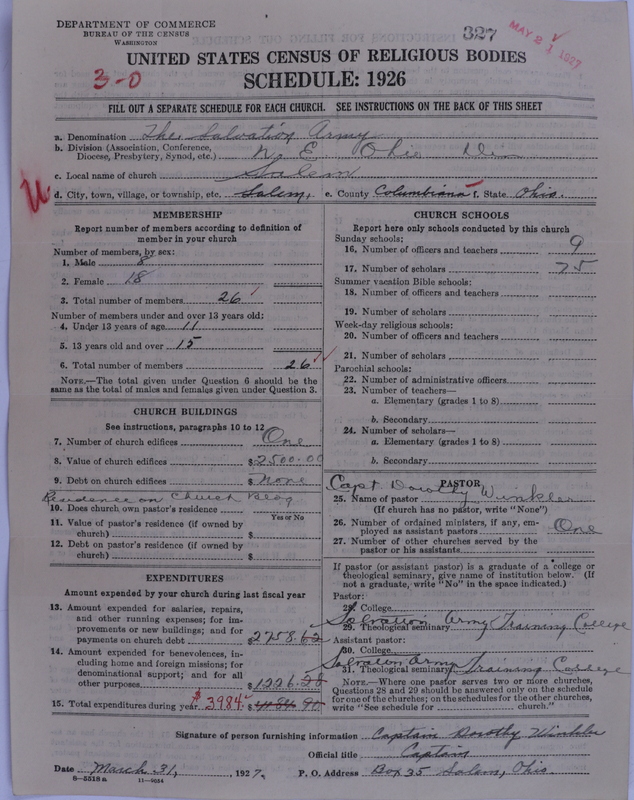 DEPARTMENT OF COMMERCE
BUREAU OF THE CENSUS
WASHINGTON
327
MAY 2 1927
UNITED STATES CENSUS OF RELIGIOUS BODIES
3-0
SCHEDULE: 1926
FILL OUT A SEPARATE SCHEDULE FOR EACH CHURCH. SEE INSTRUCTIONS ON THE BACK OF THIS SHEET
a. Denomination The Salvation Army
b. Division (Association, Conference, Diocese, Presbytery, Synod, etc.) N. E. Ohio Div
c. Local name of church Salem
d. City, town, village, or township, etc. Salem, e. County Columbiana f. State Ohio.
MEMBERSHIP
Report number of members according to definition of
member in your church
Number of members, by sex:
1. Male 8
2. Female 18
3. Total number of members 26
Number of members under and over 13 years old:
4. Under 13 years of age 11
5. 13 years old and over 15
6. Total number of members 26
NOTE.—The total given under Question 6 should be
same as the total of males and females given under Question 3.
CHURCH BUILDINGS
See instructions, paragraphs 10 to 12
7. Number of church edifices One
8. Value of church edifices $2500.00
9. Debt on church edifices $ None
Residence on Church Bldg
10. Does church own pastor's residence
Yes or No
11. Value of pastor's residence (if owned by
church) $
12. Debt on pastor's residence (if owned by
church) $
EXPENDITURES
Amount expended by your church during last fiscal year
13. Amount expended for salaries, repairs,
and other running expenses; for im-
provements or new buildings; and for
payments on church debt 2758.62
14. Amount expended for benevolences, in-
cluding home and foreign missions; for
denominational support; and for all
other purposes $1226.28
15. Total expenditures during year $3984. $ 90
CHURCH SCHOOLS
Report here only schools conducted by this church
Sunday schools:
16. Number of officers and teachers 9
17. Number of scholars 75
Summer vacation Bible schools:
18. Number of officers and teachers
19. Number of scholars
Week-day religious schools:
20. Number of officers and teachers
21. Number of scholars
Parochial schools:
22. Number of administrative officers
23. Number of teachers—
a. Elementary (grades 1 to 8)
b. Secondary
24. Number of scholars—
a. Elementary (grades 1 to 8)
b. Secondary
PASTOR
Capt. Dorothy Winkler
25. Name of pastor
(If church has no pastor, write "None")
26. Number of ordained ministers, if any, em-
ployed as assistant pastors One
27. Number of other churches served by the
pastor or his assistants
If pastor (or assistant pastor) is a graduate of a college or
theological seminary, give name of institution below. (If
not a graduate, write "No" in the space indicated.)
Pastor:
28. College
Salvation Army Training College
29. Theological seminary
Assistant pastor:
30. College
Salvation Army Training College
31. Theological seminary
NOTE.—Where one pastor serves two or more churches,
Questions 28 and 29 should be answered only on the schedule
for one of the churches; on the schedules for the other churches,
write "See schedule for church."
Signature of person furnishing information Captain Dorothy Winkler
Official title Captain
Date March 31, 1927. P. O. Address Box 35 Salem, Ohio.
8—5518a 11—9054